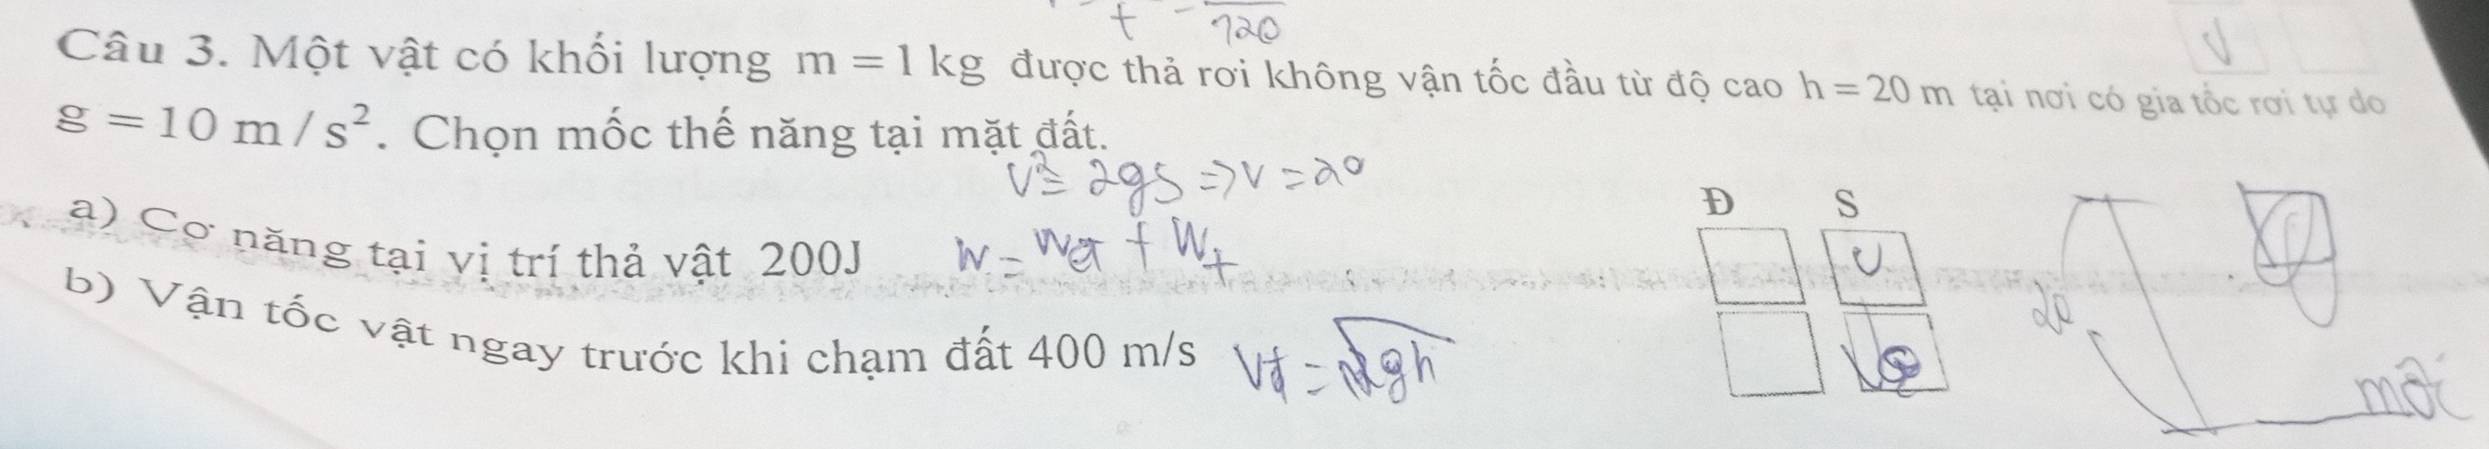 t - 720
Câu 3. Một vật có khối lượng m = 1 kg được thả rơi không vận tốc đầu từ độ cao h = 20 m tại nơi có gia tốc rơi tự do
g = 10 m / s². Chọn mốc thế năng tại mặt đất.
v² = 2gs => v = 20
Đ S
a) Cơ năng tại vị trí thả vật 200J
W = Wđ + Wt
20
b) Vận tốc vật ngay trước khi chạm đất 400 m/s
mốc